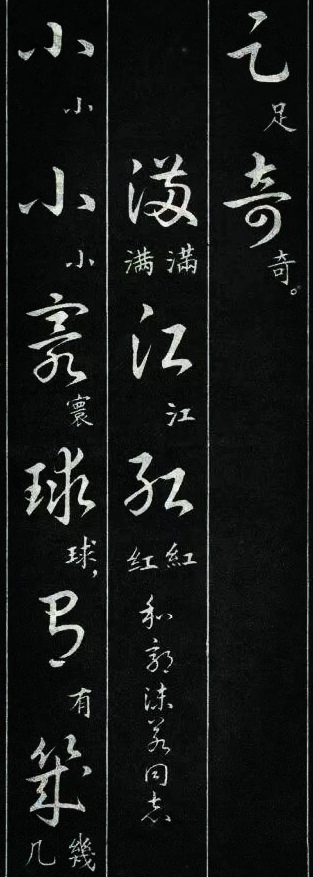 足足奇奇。
满满滿江江红红紅和郭沫若同志
小小小小寰寰球球，有有几几幾